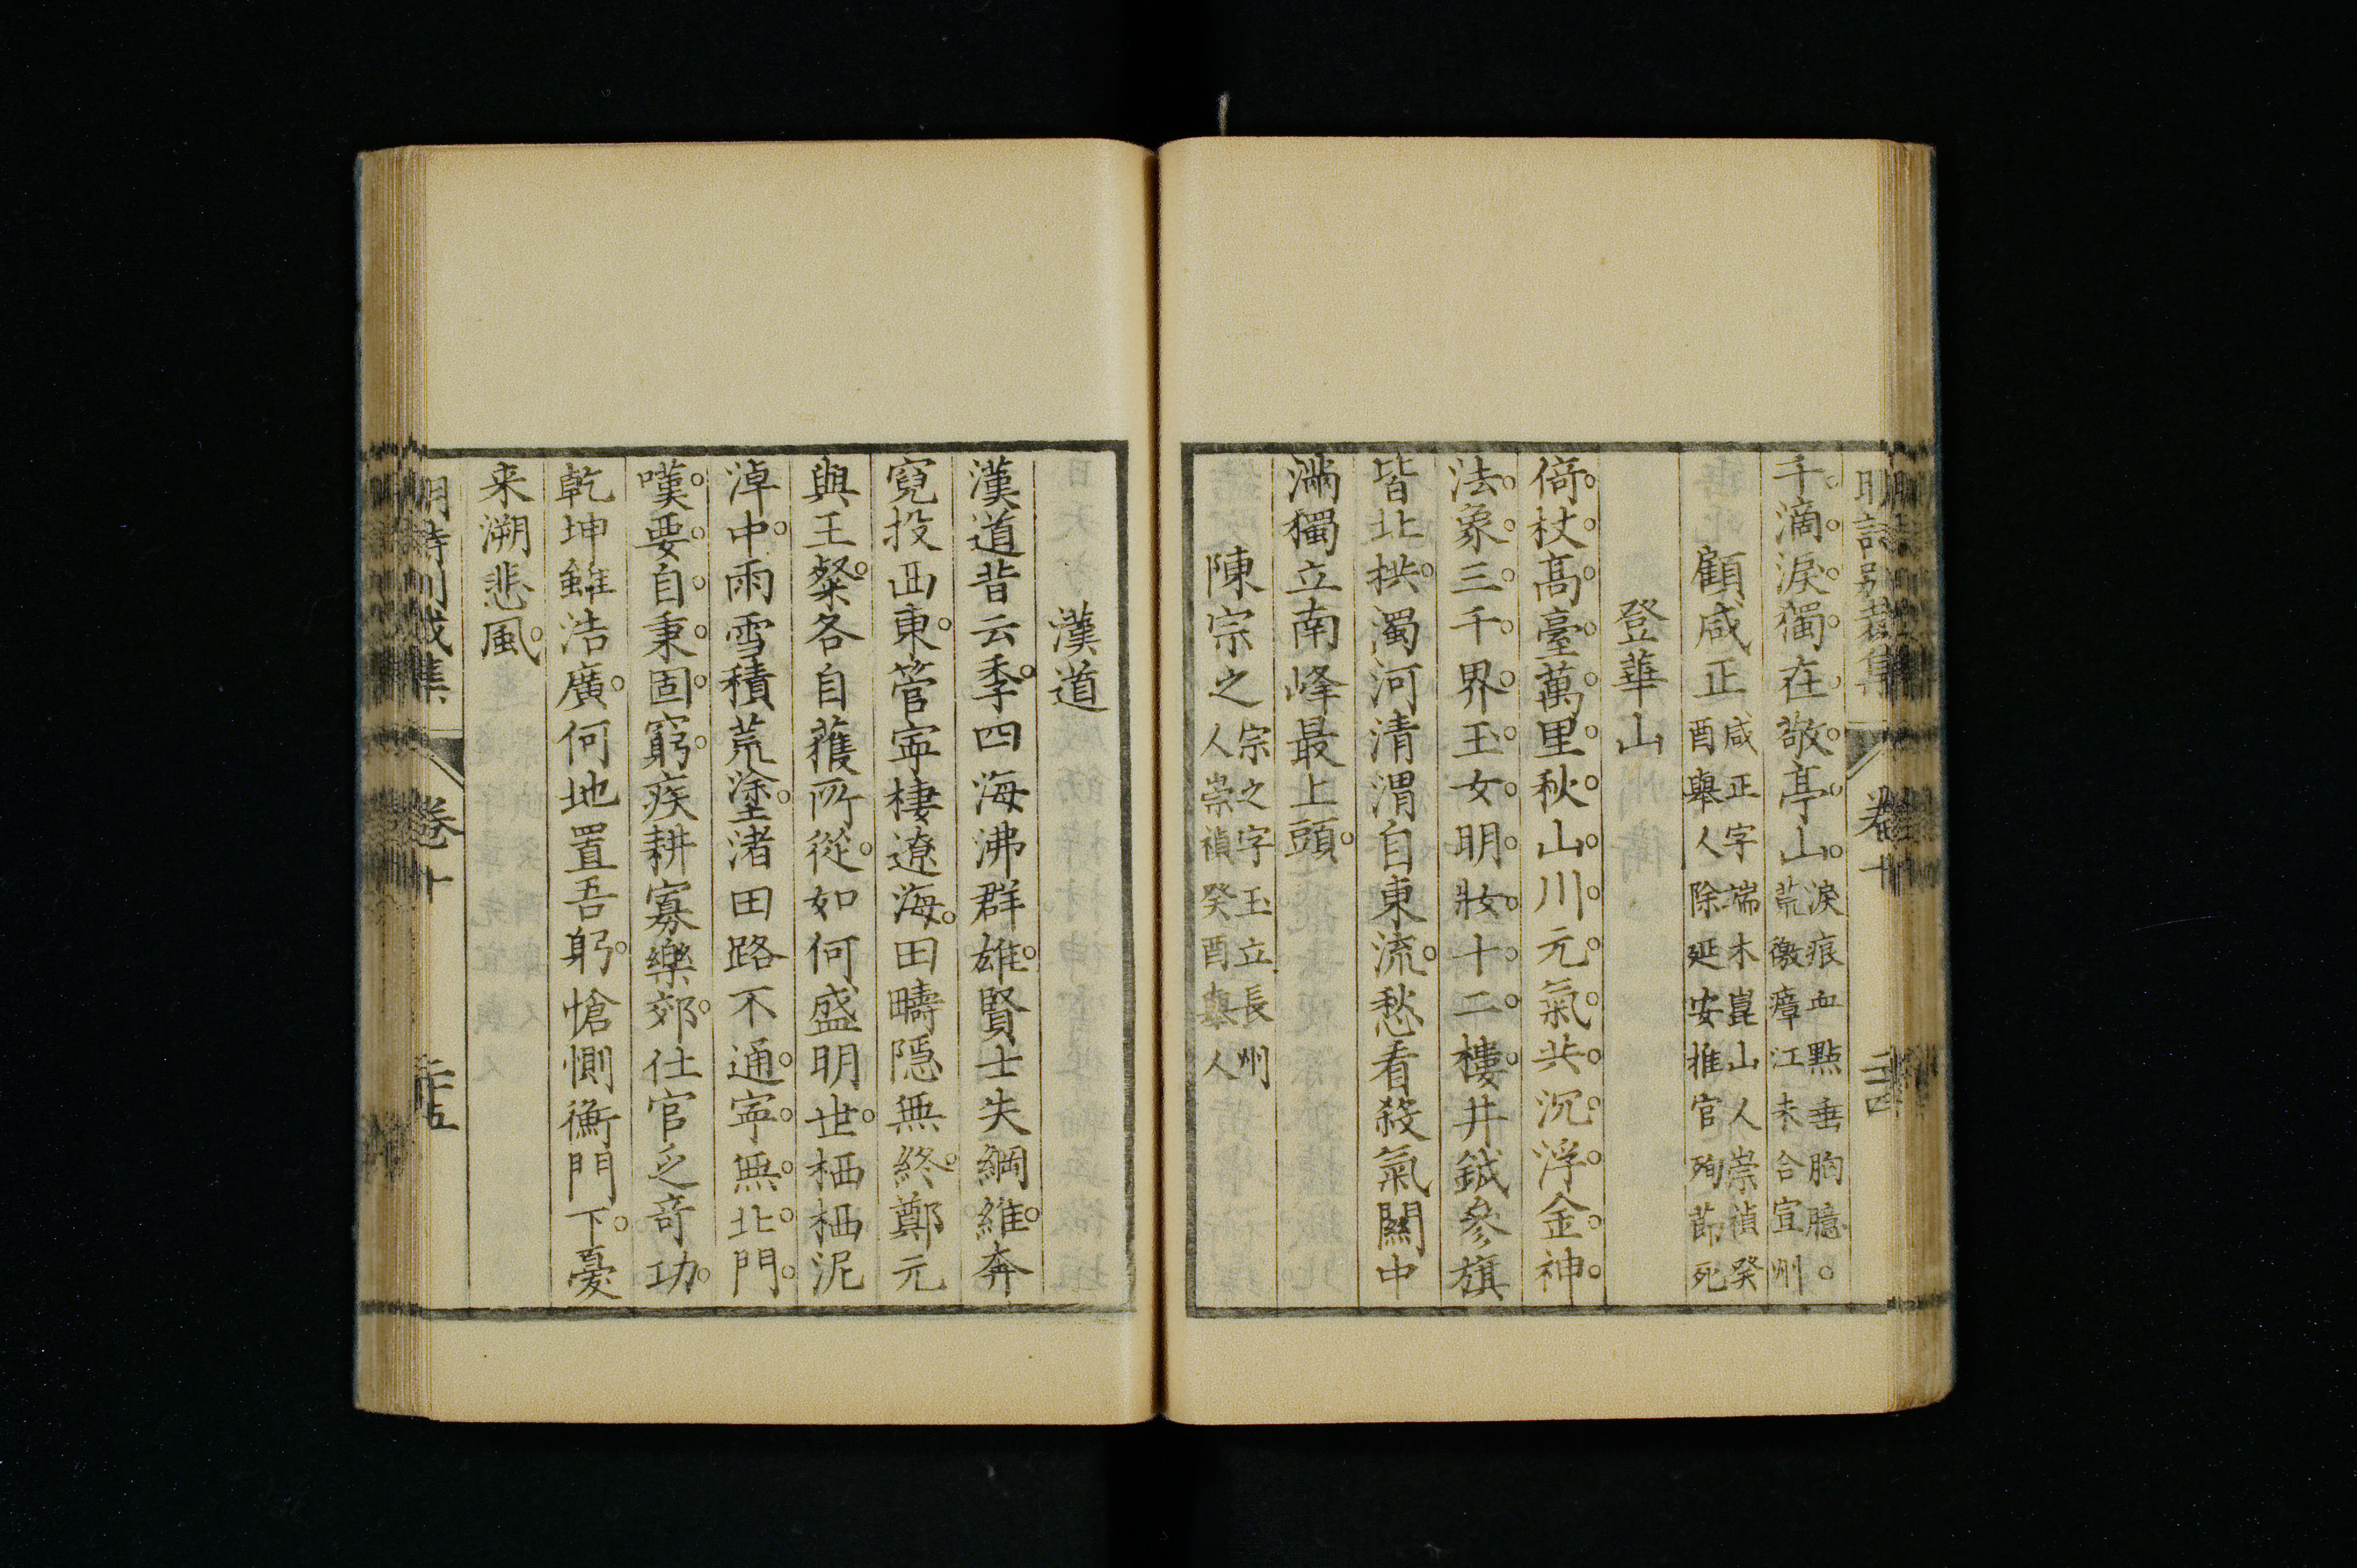 明詩別裁集 卷十 二十四
千滴淚獨在敬亭山淚痕血點垂胸臆荒徼瘴江未合宣州
顧咸正咸正字端木崑山人崇禎癸酉舉人除延安推官殉節死
登華山
倚杖高臺萬里秋山川元氣共沉浮金神
法象三千界玉女明妝十二樓井鉞參旗
皆北拱濁河清渭自東流愁看殺氣關中
滿獨立南峰最上頭
陳宗之宗之字玉立長州人崇禎癸酉舉人
漢道
漢道昔云季四海沸群雄賢士失綱維奔
竄投西東管寧棲遼海田疇隱無終鄭元
與王粲各自蒦所從如何盛明世栖栖泥
淖中雨雪積荒塗渚田路不通寧無北門
嘆要自秉固窮疾耕寡樂郊仕官乏奇功
乾坤雖浩廣何地置吾躬愴惻衡門下憂
来溯悲風
明詩別裁集 卷十 二十五